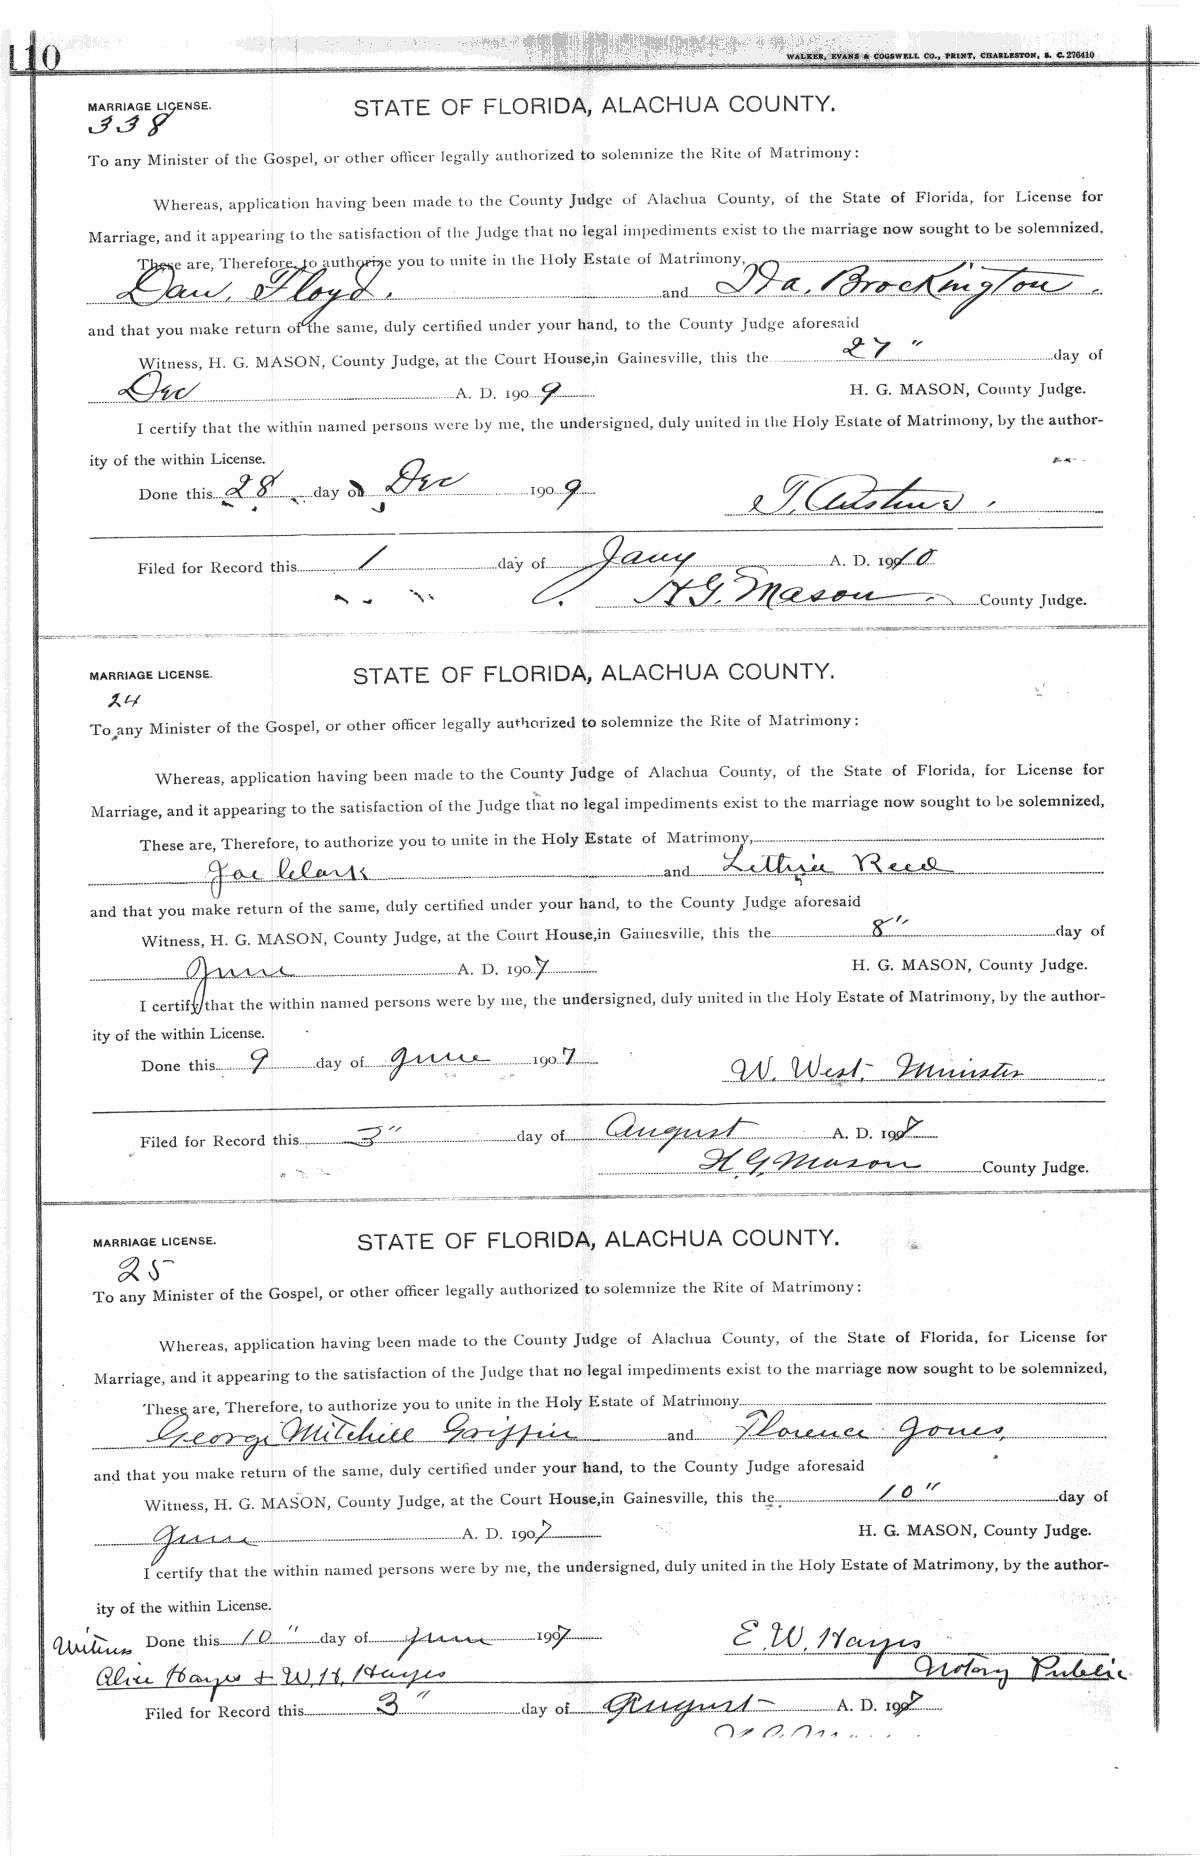 110
WALKER, EVANS & COGSWELL CO., PRINT, CHARLESTON, S. C. 276410
MARRIAGE LICENSE. STATE OF FLORIDA, ALACHUA COUNTY.
338
To any Minister of the Gospel, or other officer legally authorized to solemnize the Rite of Matrimony:
Whereas, application having been made to the County Judge of Alachua County, of the State of Florida, for License for
Marriage, and it appearing to the satisfaction of the Judge that no legal impediments exist to the marriage now sought to be solemnized,
These are, Therefore, to authorize you to unite in the Holy Estate of Matrimony,
Dan. Floyd. and Ida. Brockington.
and that you make return of the same, duly certified under your hand, to the County Judge aforesaid
Witness, H. G. MASON, County Judge, at the Court House, in Gainesville, this the 27" day of
Dec A. D. 1909 H. G. MASON, County Judge.
I certify that the within named persons were by me, the undersigned, duly united in the Holy Estate of Matrimony, by the author-
ity of the within License.
Done this 28 day of Dec 1909 T.
Filed for Record this 1 day of Jany A. D. 1910
H G. Mason. County Judge.
MARRIAGE LICENSE. STATE OF FLORIDA, ALACHUA COUNTY.
24
To any Minister of the Gospel, or other officer legally authorized to solemnize the Rite of Matrimony:
Whereas, application having been made to the County Judge of Alachua County, of the State of Florida, for License for
Marriage, and it appearing to the satisfaction of the Judge that no legal impediments exist to the marriage now sought to be solemnized,
These are, Therefore, to authorize you to unite in the Holy Estate of Matrimony,
Joe Clark and Lethia Reed
and that you make return of the same, duly certified under your hand, to the County Judge aforesaid
Witness, H. G. MASON, County Judge, at the Court House, in Gainesville, this the 8" day of
June A. D. 1907 H. G. MASON, County Judge.
I certify that the within named persons were by me, the undersigned, duly united in the Holy Estate of Matrimony, by the author-
ity of the within License.
Done this 9 day of June 1907 W. West, Minister
Filed for Record this 3" day of August A. D. 1907
H. G. Mason County Judge.
MARRIAGE LICENSE. STATE OF FLORIDA, ALACHUA COUNTY.
25
To any Minister of the Gospel, or other officer legally authorized to solemnize the Rite of Matrimony:
Whereas, application having been made to the County Judge of Alachua County, of the State of Florida, for License for
Marriage, and it appearing to the satisfaction of the Judge that no legal impediments exist to the marriage now sought to be solemnized,
These are, Therefore, to authorize you to unite in the Holy Estate of Matrimony
George Mitchell Griffin and Florence Jones.
and that you make return of the same, duly certified under your hand, to the County Judge aforesaid
Witness, H. G. MASON, County Judge, at the Court House, in Gainesville, this the 10" day of
June A. D. 1907 H. G. MASON, County Judge.
I certify that the within named persons were by me, the undersigned, duly united in the Holy Estate of Matrimony, by the author-
ity of the within License.
Witness Done this 10" day of June 1907 E. W. Hayes
Alice Hayes & W. H. Hayes Notary Public
Filed for Record this 3" day of August A. D. 1907